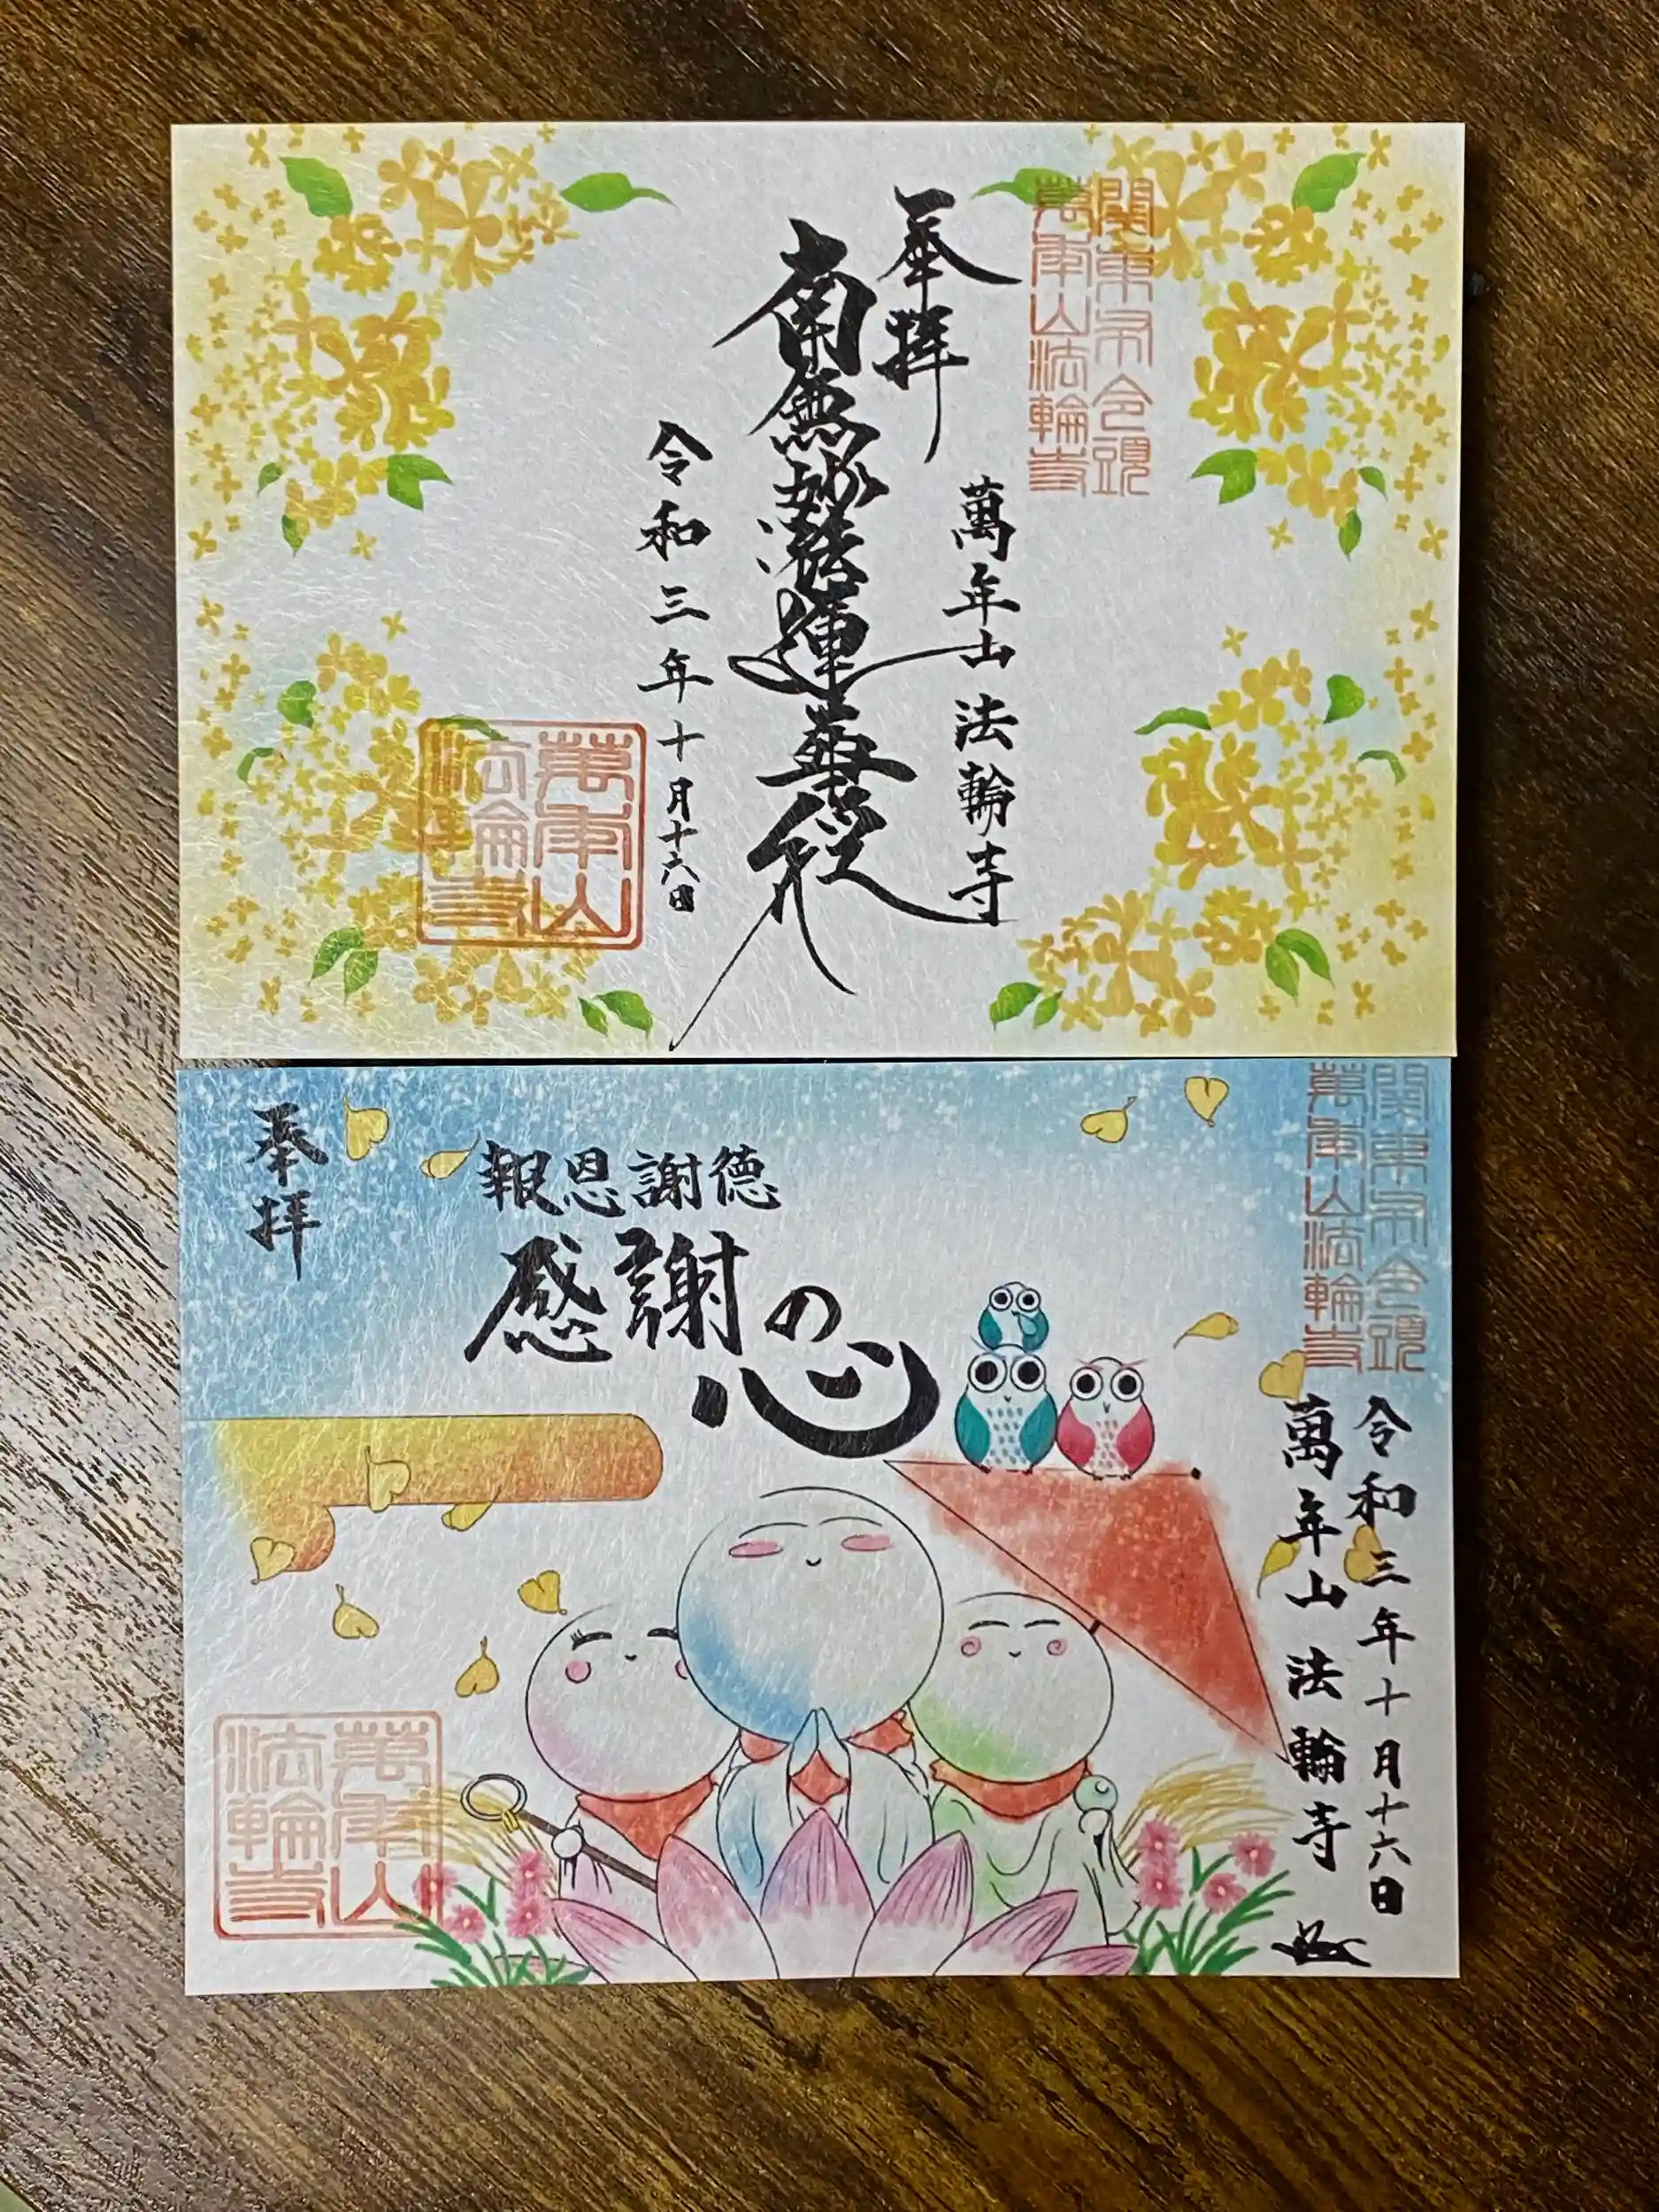 關東布令頭
萬年山法輪寺
奉拝
萬年山法輪寺
南無妙法蓮華経
令和三年十月十六日
萬年山
法輪寺
關東布令頭
萬年山法輪寺
令和三年十月十六日
萬年山法輪寺
報恩謝徳
感謝の心
奉拝
萬年山
法輪寺